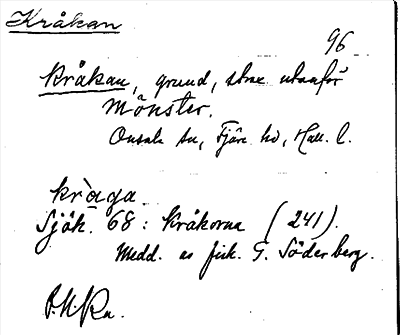 Kråkan
96
Kråkan, grund, strax utanför
Mönster.
Onsala sn, Fjäre hd, Hall. l.
kråga
Sjök. 68: Kråkorna (241).
Medd. av fisk. G. Söderberg.